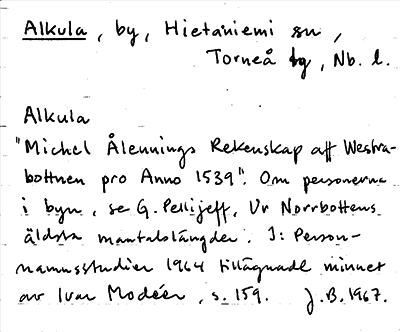 Alkula, by, Hietaniemi sn,
Torneå tg, Nb. l.
Alkula
"Michel Ålennings Rekenskap aff Westra-
bottnen pro Anno 1539". Om personerna
i byn, se G. Pellijeff, Ur Norrbottens
äldsta mantalslängder. I: Person-
namnsstudier 1964 tillägnade minnet
av Ivar Modéer, s. 159. J.B. 1967.